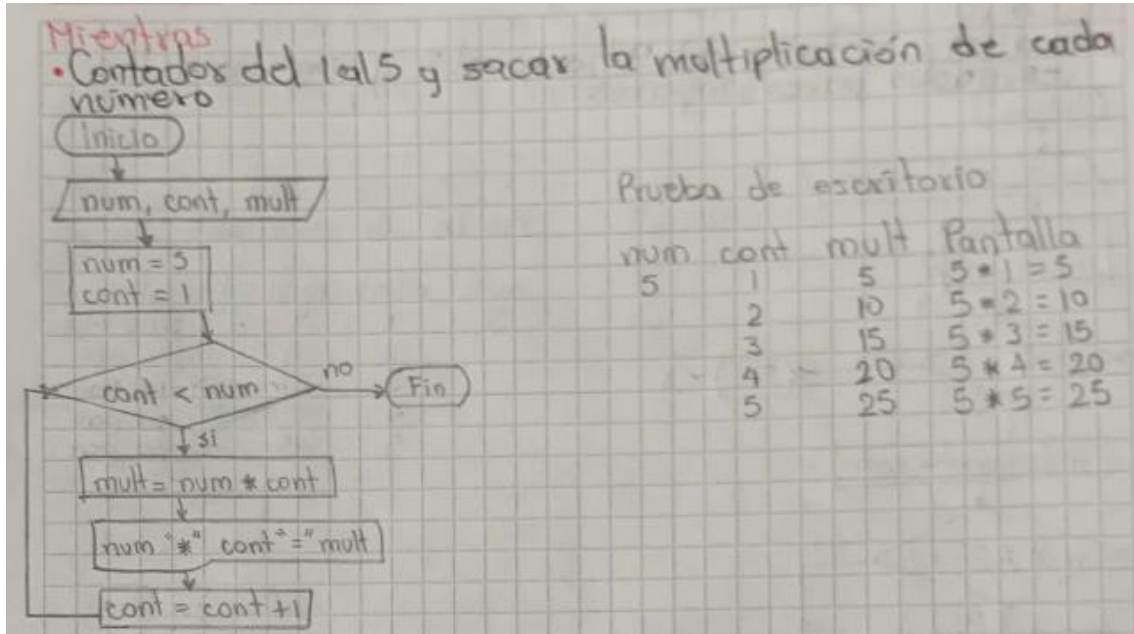 Mientras
• Contador del 1 al 5 y sacar la multiplicación de cada
número
Inicio
num, cont, mult
num = 5
cont = 1
cont < num
no
Fin
si
mult = num * cont
num "*" cont "=" mult
cont = cont + 1
Prueba de escritorio
num cont mult Pantalla
5 1 5 5 * 1 = 5
2 10 5 * 2 = 10
3 15 5 * 3 = 15
4 20 5 * 4 = 20
5 25 5 * 5 = 25